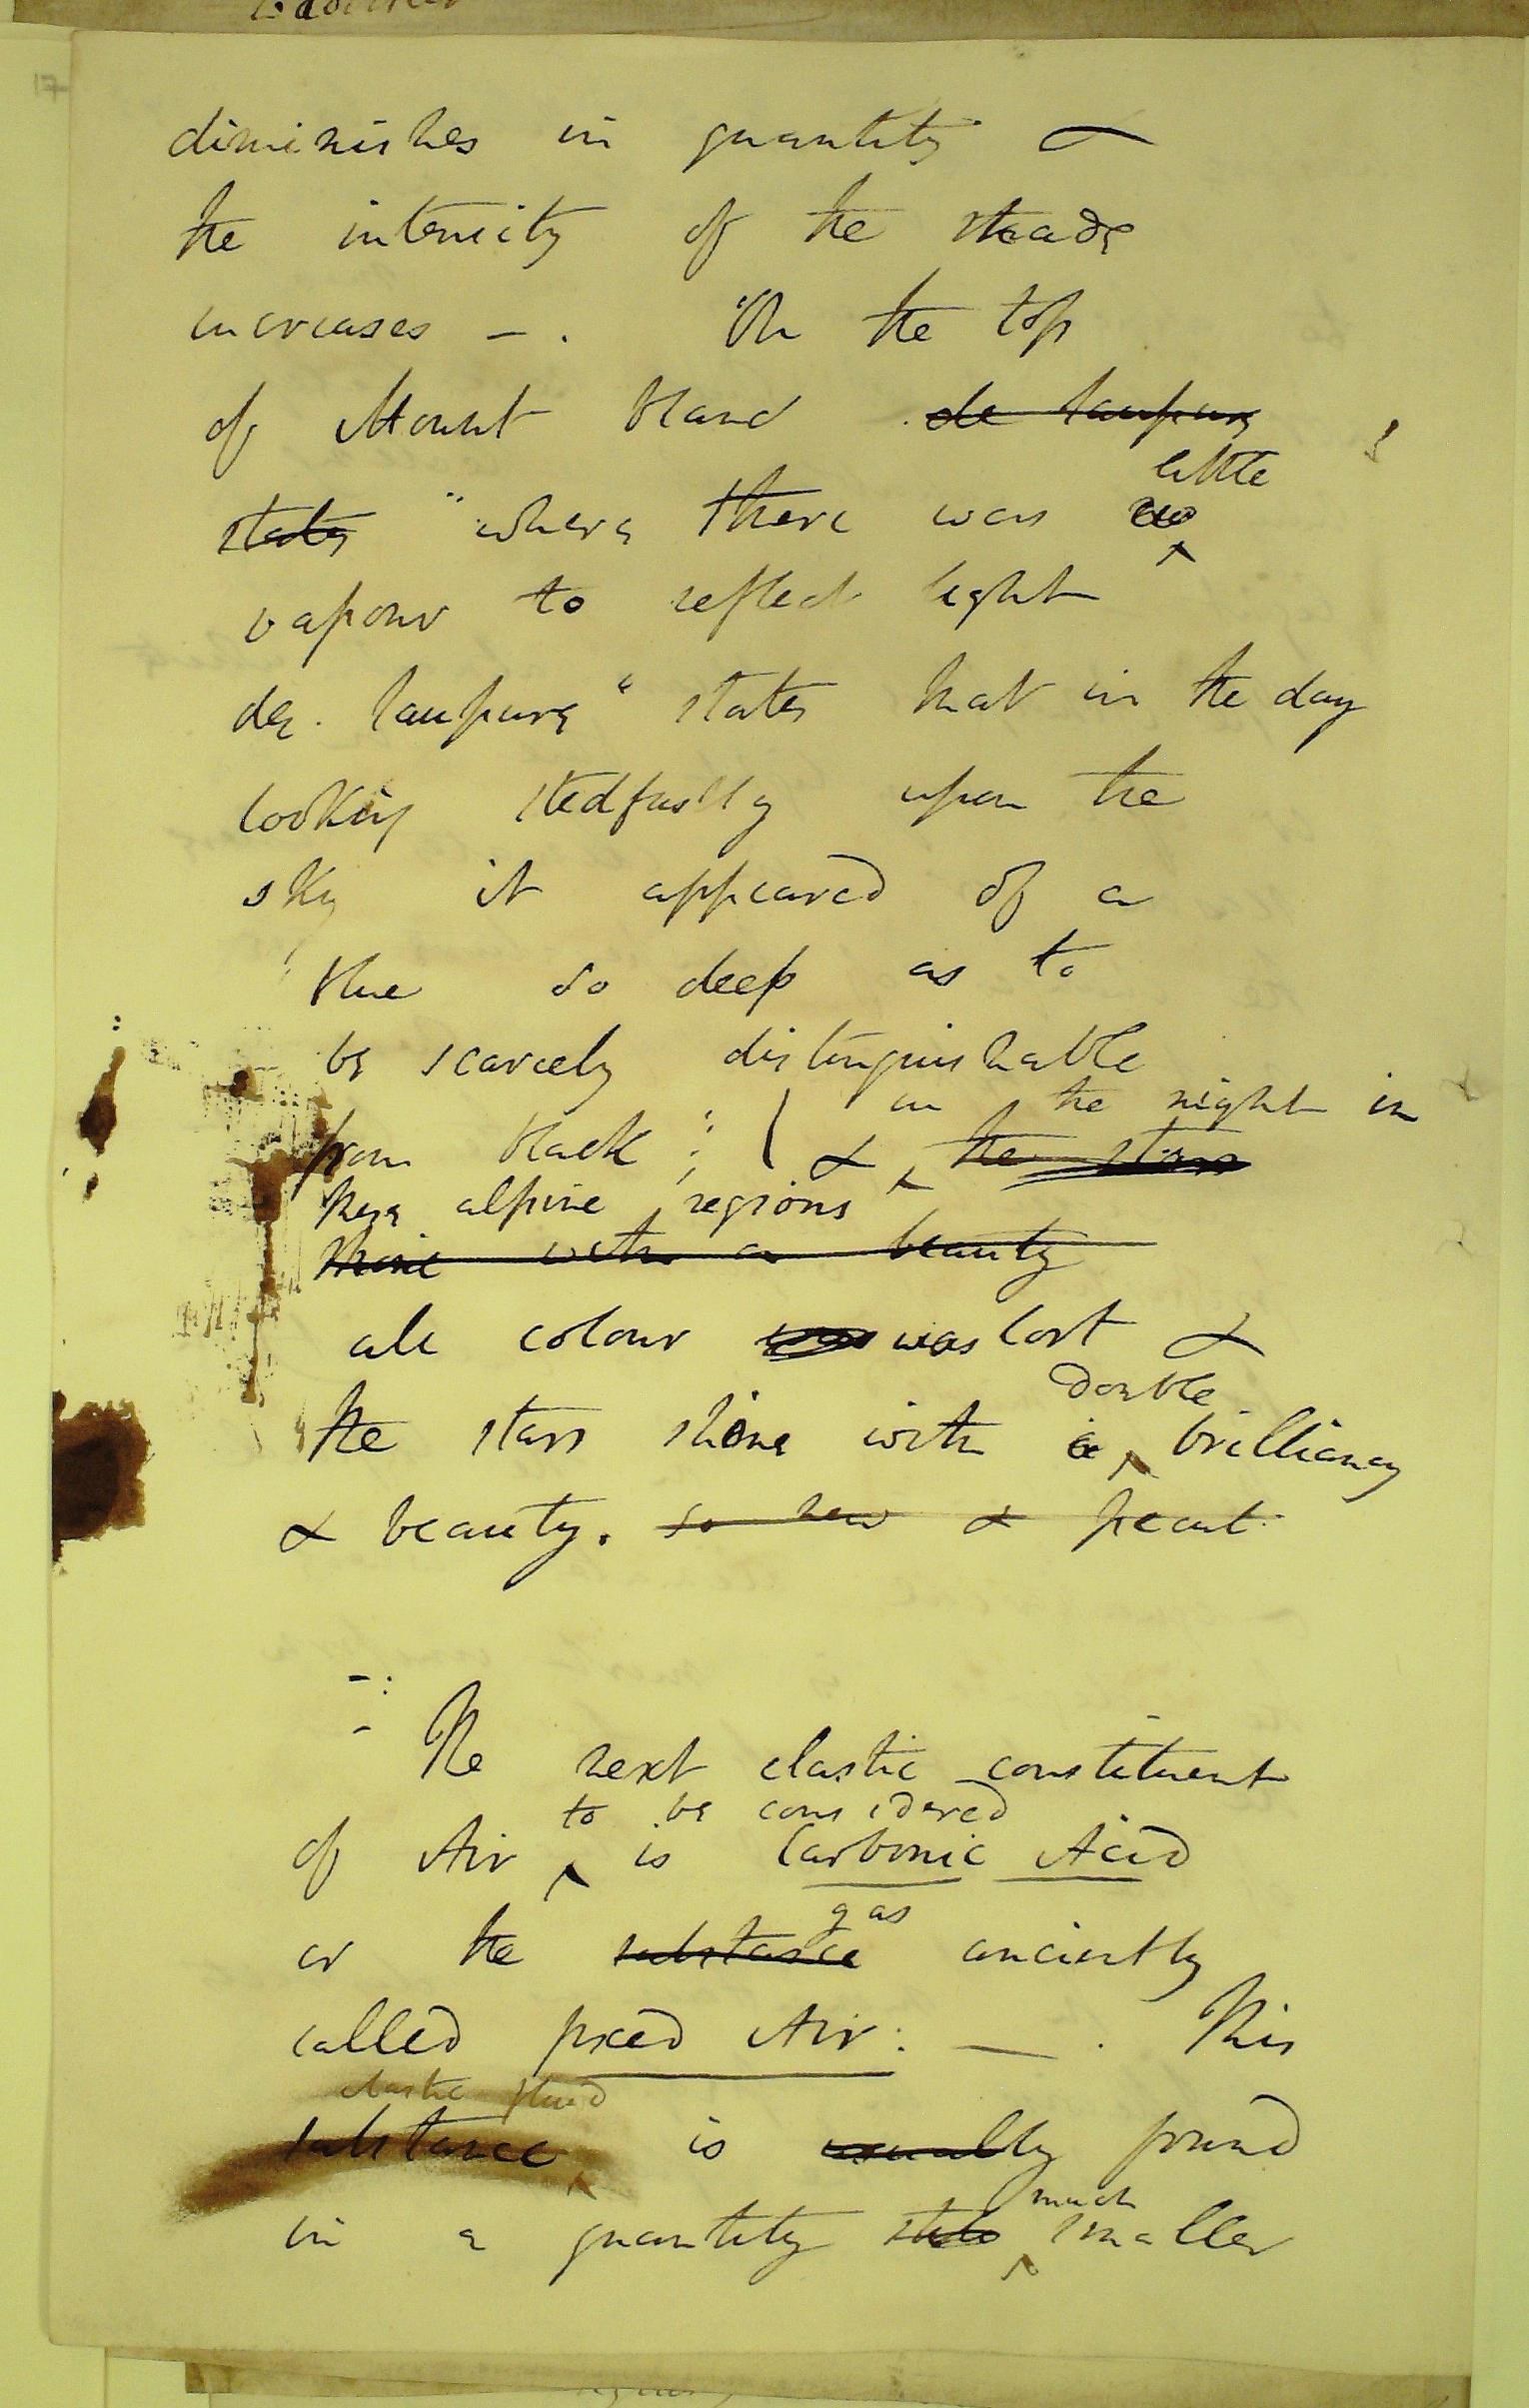 diminishes in quantity &
the intensity of the shade
increases - . On the top
of Mount blanc de Saupure
little
states "where there was no
vapour to reflect light
de. Saupure" states that in the day
looking stedfastly upon the
sky it appeared of a
blue so deep as to
be scarcely distinguishable
in the night in
from black ; & the stars
these alpine regions
shine with a beauty
all colour was was lost &
double
the stars shone with a brilliancy
& beauty. so new &
The next elastic constituent
to be considered
of Air is Carbonic Acid
gas
or the substance anciently
called fixed Air: — . This
elastic fluid
substance is usually found
much
in a quantity still smaller